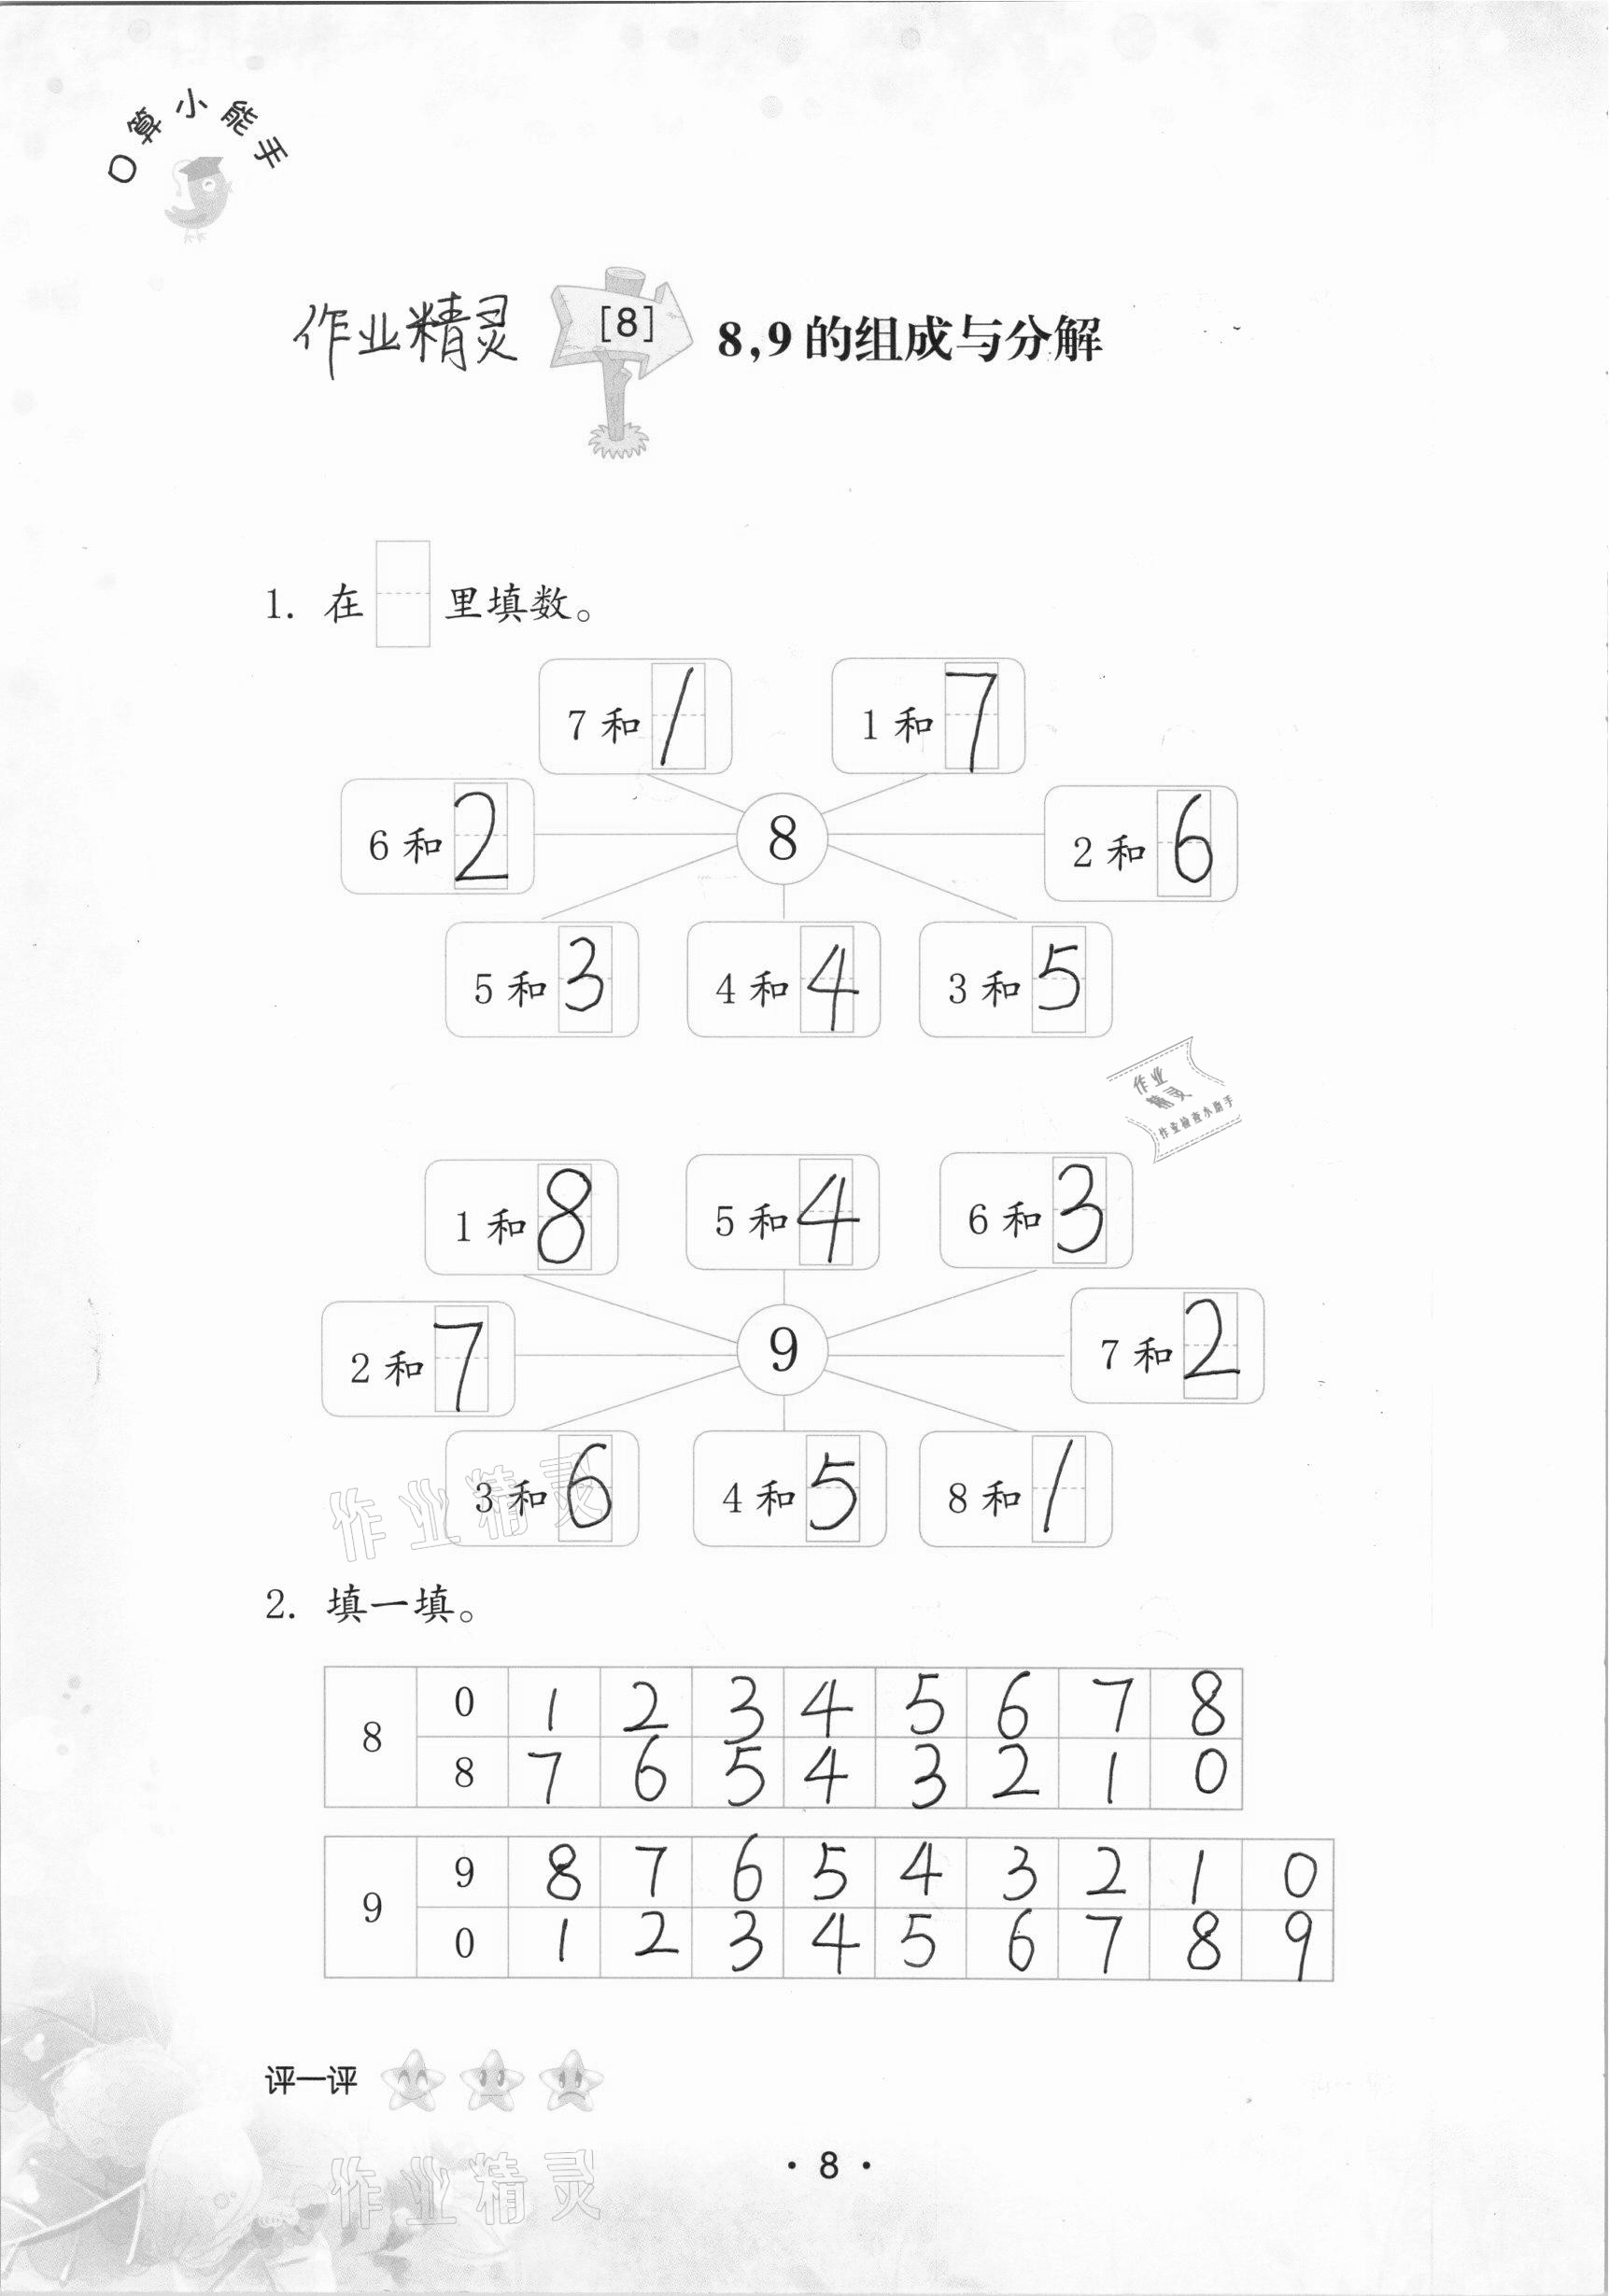 口算小能手
作业精灵 [8] 8,9的组成与分解
1. 在 里填数。
7和1 1和7
6和2 8 2和6
5和3 4和4 3和5
作业
精灵
作业检查小助手
1和8 5和4 6和3
2和7 9 7和2
3和6 4和5 8和1
作业精灵
2. 填一填。
8 0 1 2 3 4 5 6 7 8
8 7 6 5 4 3 2 1 0
9 9 8 7 6 5 4 3 2 1 0
0 1 2 3 4 5 6 7 8 9
评一评
作业精灵
· 8 ·